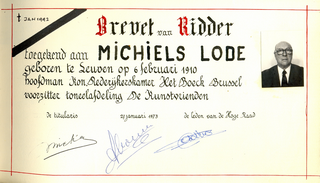 ✝ JAN 1992
Brevet van Ridder
toegekend aan MICHIELS LODE
geboren te Leuven op 6 februari 1910
hoofdman Kon. Rederijkerskamer Het Boeck Brussel
voorzitter toneelafdeling De Kunstvrienden
de titularis. 27 januari 1973 de leden van de Hoge Raad